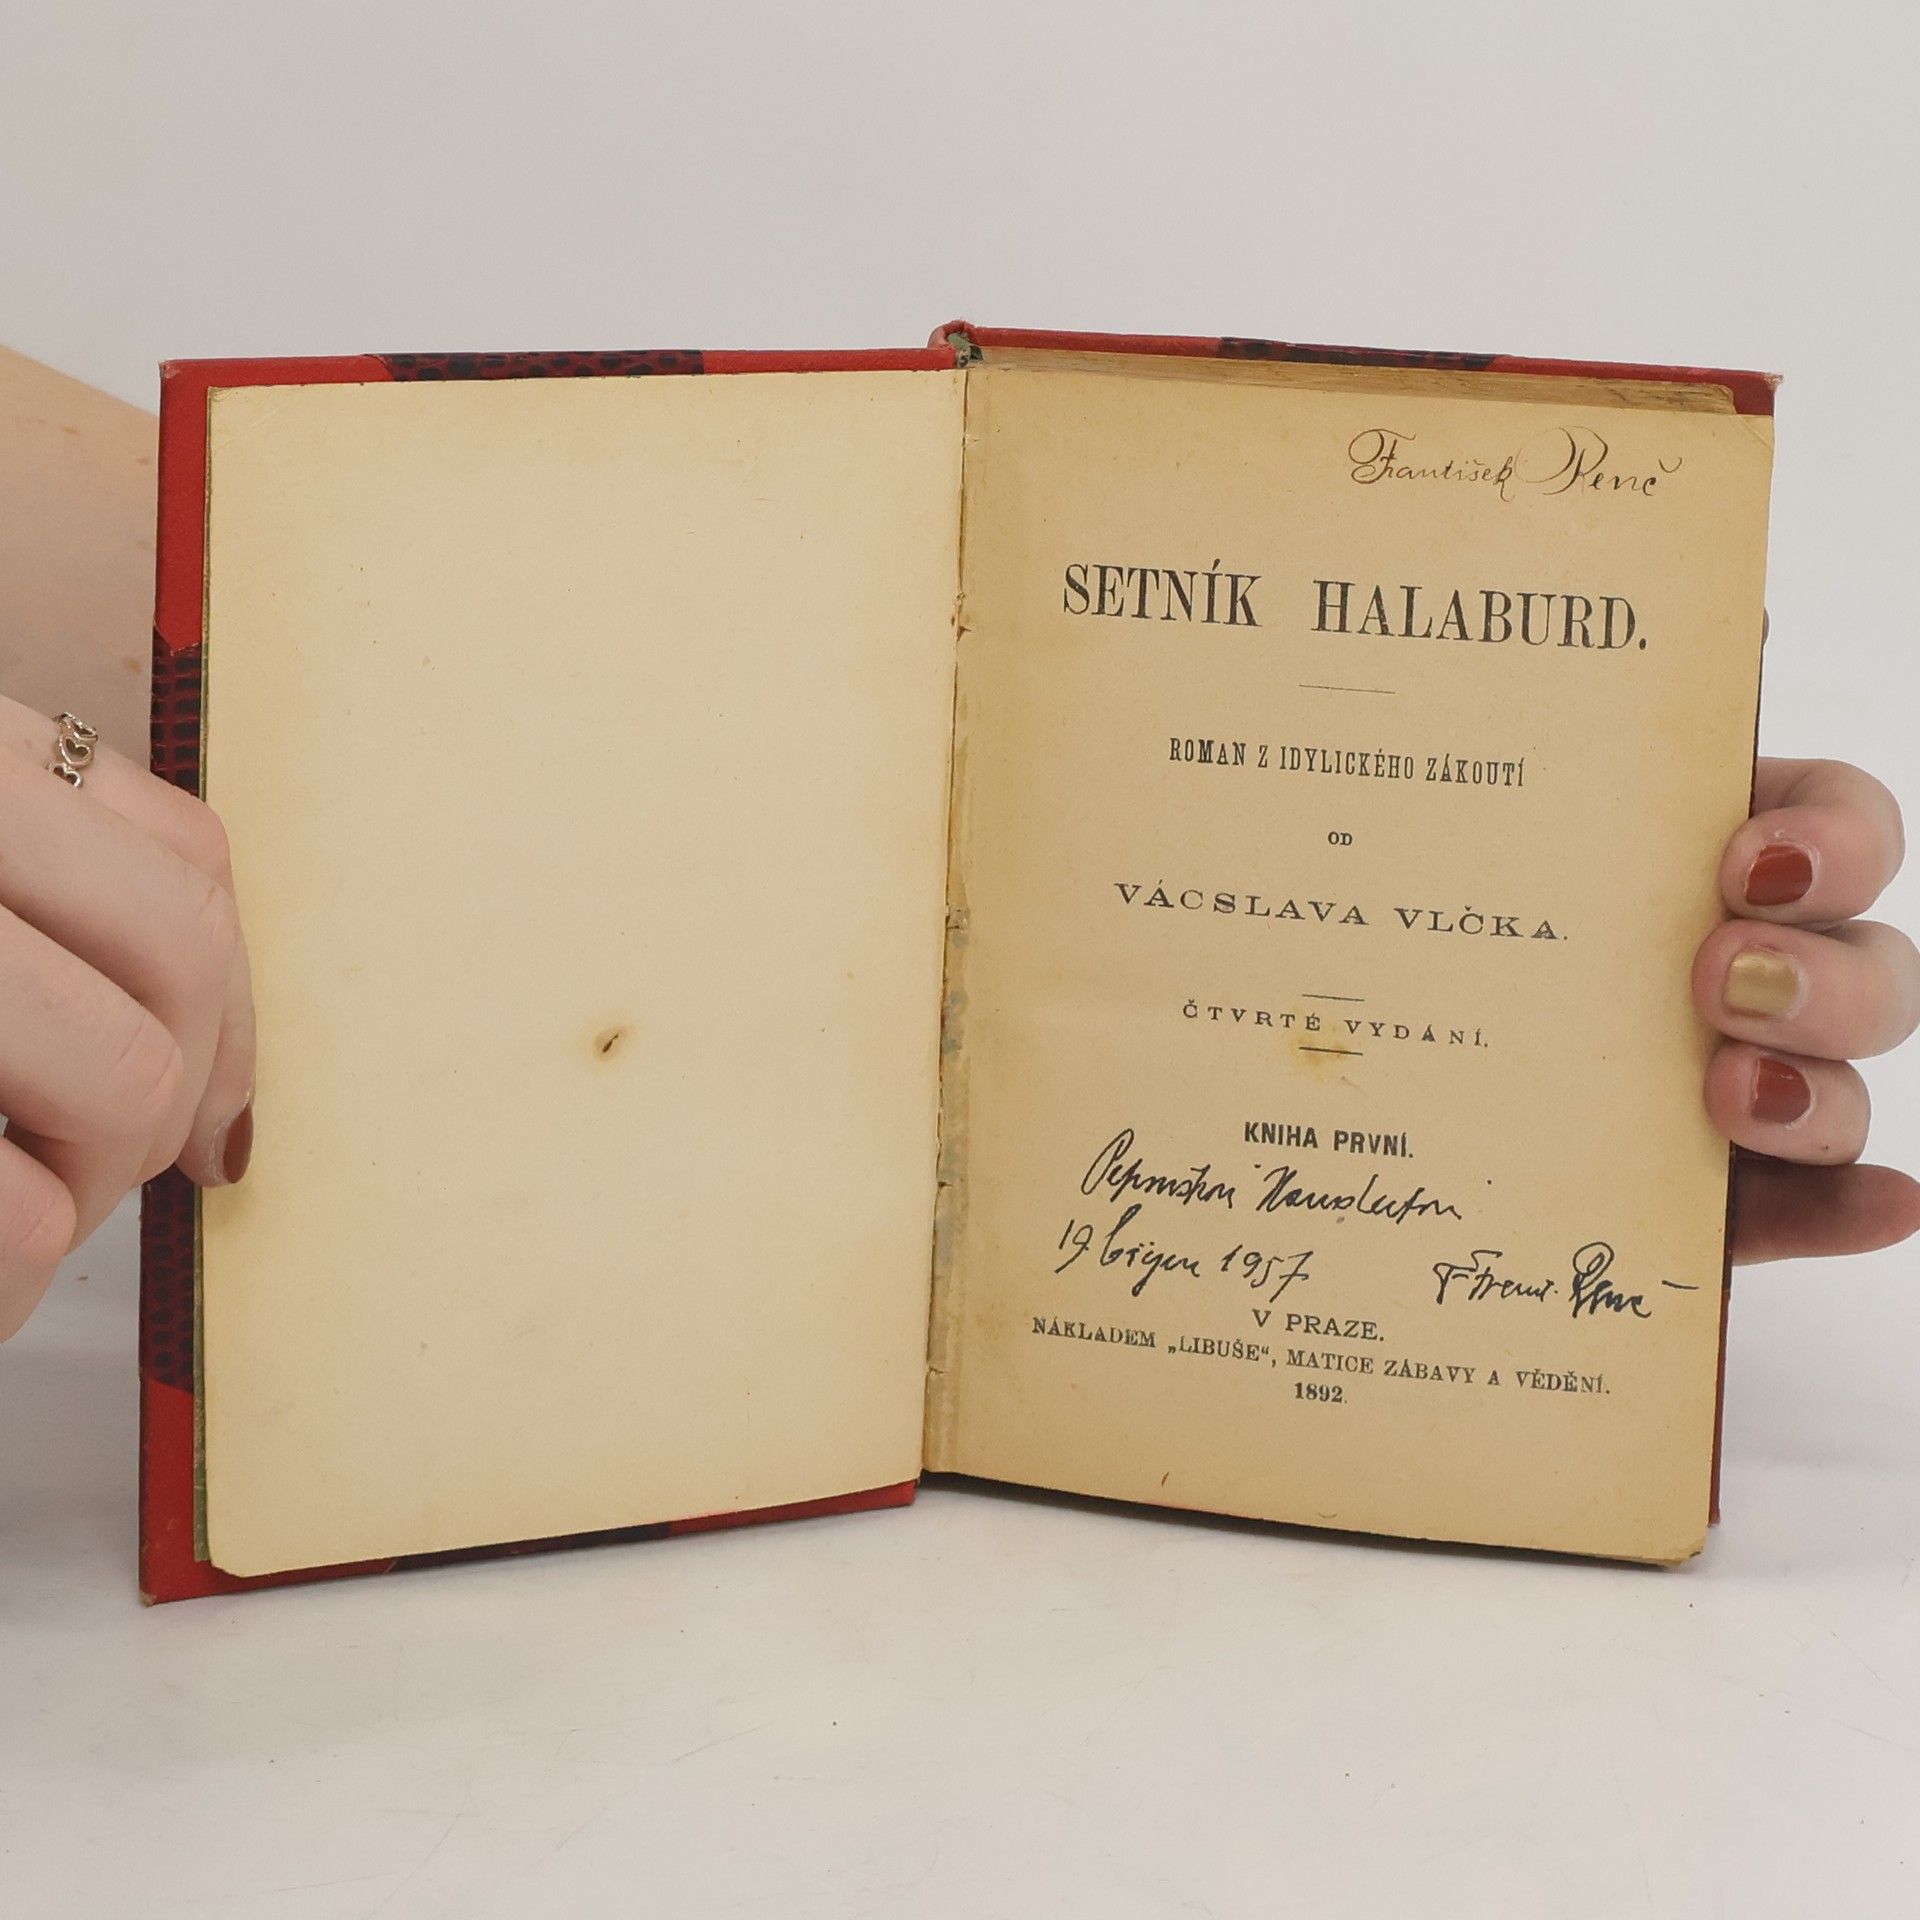 František Renč
SETNÍK HALABURD.
ROMAN Z IDYLICKÉHO ZÁKOUTÍ
OD
VÁCSLAVA VLČKA.
ČTVRTÉ VYDÁNÍ.
KNIHA PRVNÍ.
19. 1957 Renč
V PRAZE.
NÁKLADEM „LIBUŠE“, MATICE ZÁBAVY A VĚDĚNÍ.
1892.